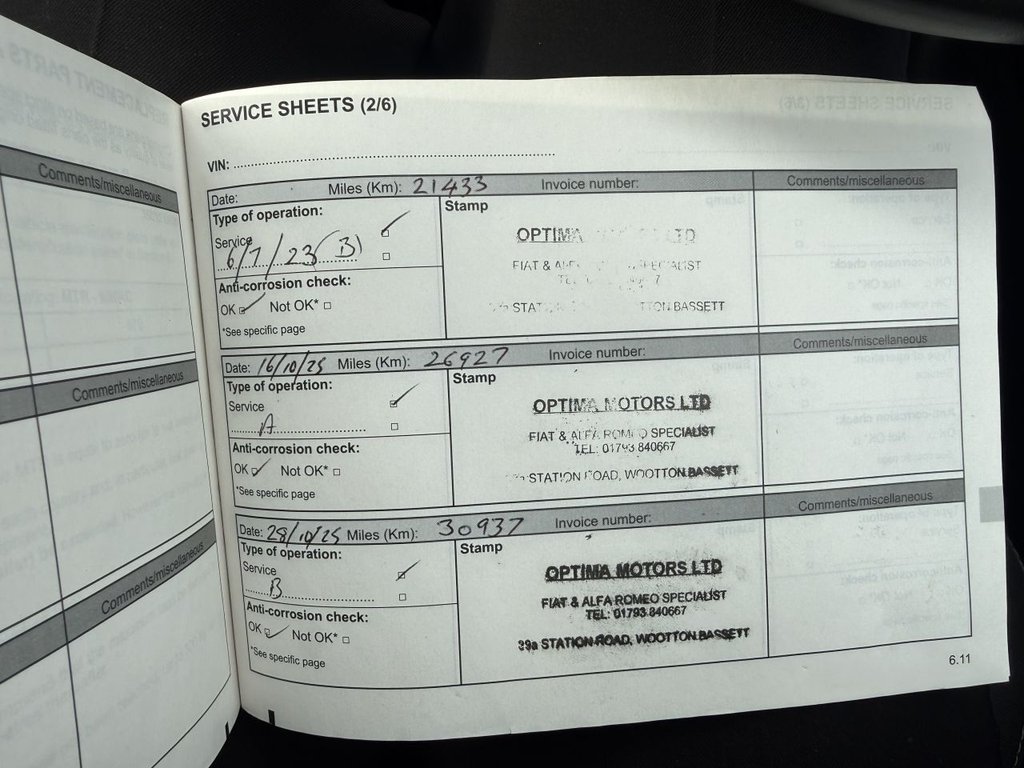 REPLACEMENT PARTS
Comments/miscellaneous
Comments/miscellaneous
Comments/miscellaneous
SERVICE SHEETS (2/6)
VIN:
Date: Miles (Km): 21433 Invoice number: Comments/miscellaneous
Type of operation: Stamp
Service
6/7/23 (B)
Anti-corrosion check:
OK Not OK*
*See specific page
OPTIMA LTD
FIAT &
STATION WOOTTON BASSETT
Date: 16/10/25 Miles (Km): 26927 Invoice number: Comments/miscellaneous
Type of operation: Stamp
Service
A
Anti-corrosion check:
OK Not OK*
*See specific page
OPTIMA MOTORS LTD
FIAT & ALFA ROMEO SPECIALIST
TEL: 01793 840667
STATION ROAD, WOOTTON BASSETT
Date: 28/10/25 Miles (Km): 30937 Invoice number: Comments/miscellaneous
Type of operation: Stamp
Service
B
Anti-corrosion check:
OK Not OK*
*See specific page
OPTIMA MOTORS LTD
FIAT & ALFA ROMEO SPECIALIST
TEL: 01793 840667
39a STATION ROAD, WOOTTON BASSETT
6.11